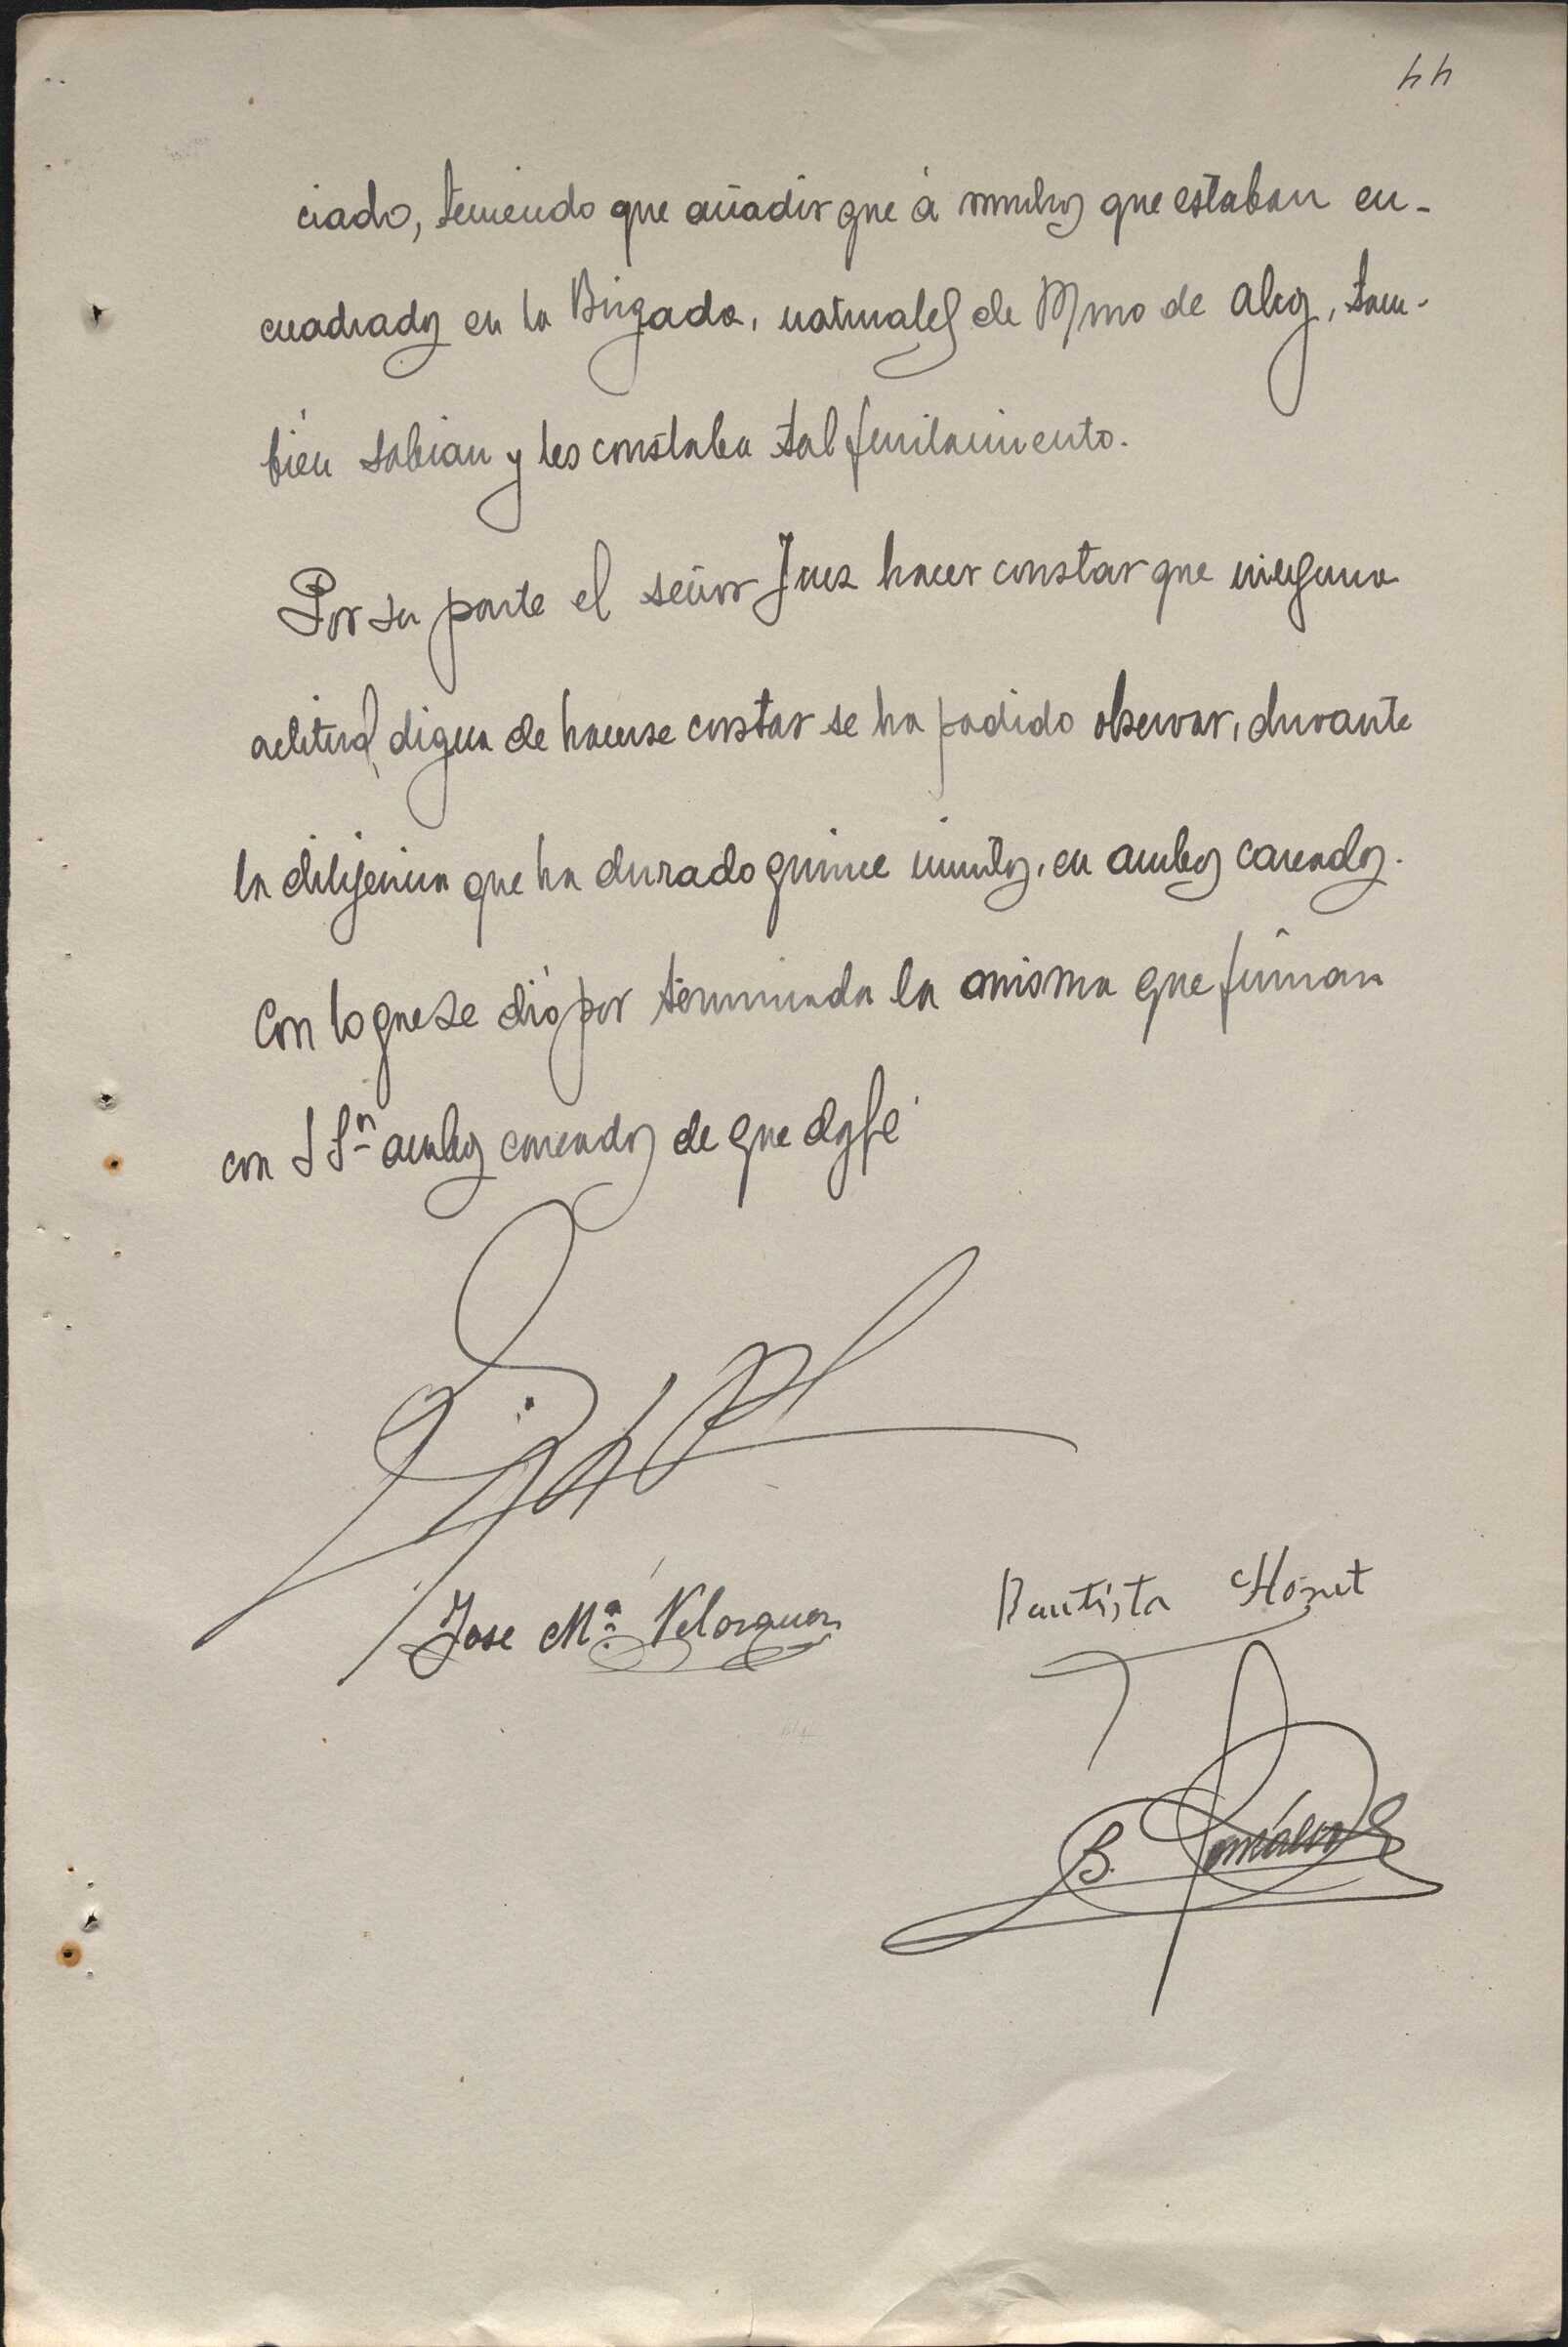 44
ciado, teniendo que añadir que á muchos que estaban en-
cuadrados en la Brigada, naturales de Muro de Alcoy, tam-
bién sabian y les constaba tal fusilamiento.
Por su parte el señor Juez hacer constar que ninguna
actitud, digna de hacerse constar se ha podido observar, durante
la diligencia que ha durado quince minutos, en ambos careados.
Con lo que se dió por terminada la misma que firman
con S Sª ambos careados de que doy fé
Jose Mª
Bautista
B.